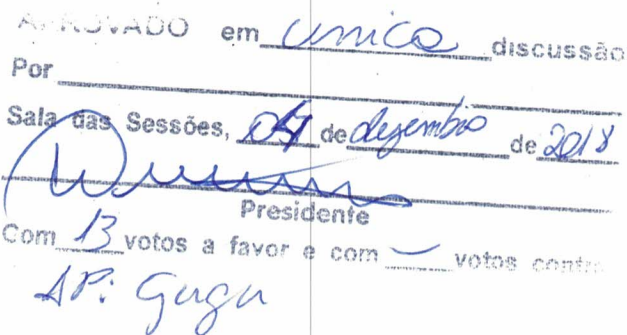 APROVADO em unica discussão
Por
Sala das Sessões, 04 de dezembro de 2018
Presidente
Com 13 votos a favor e com — votos contra
AP: Guga